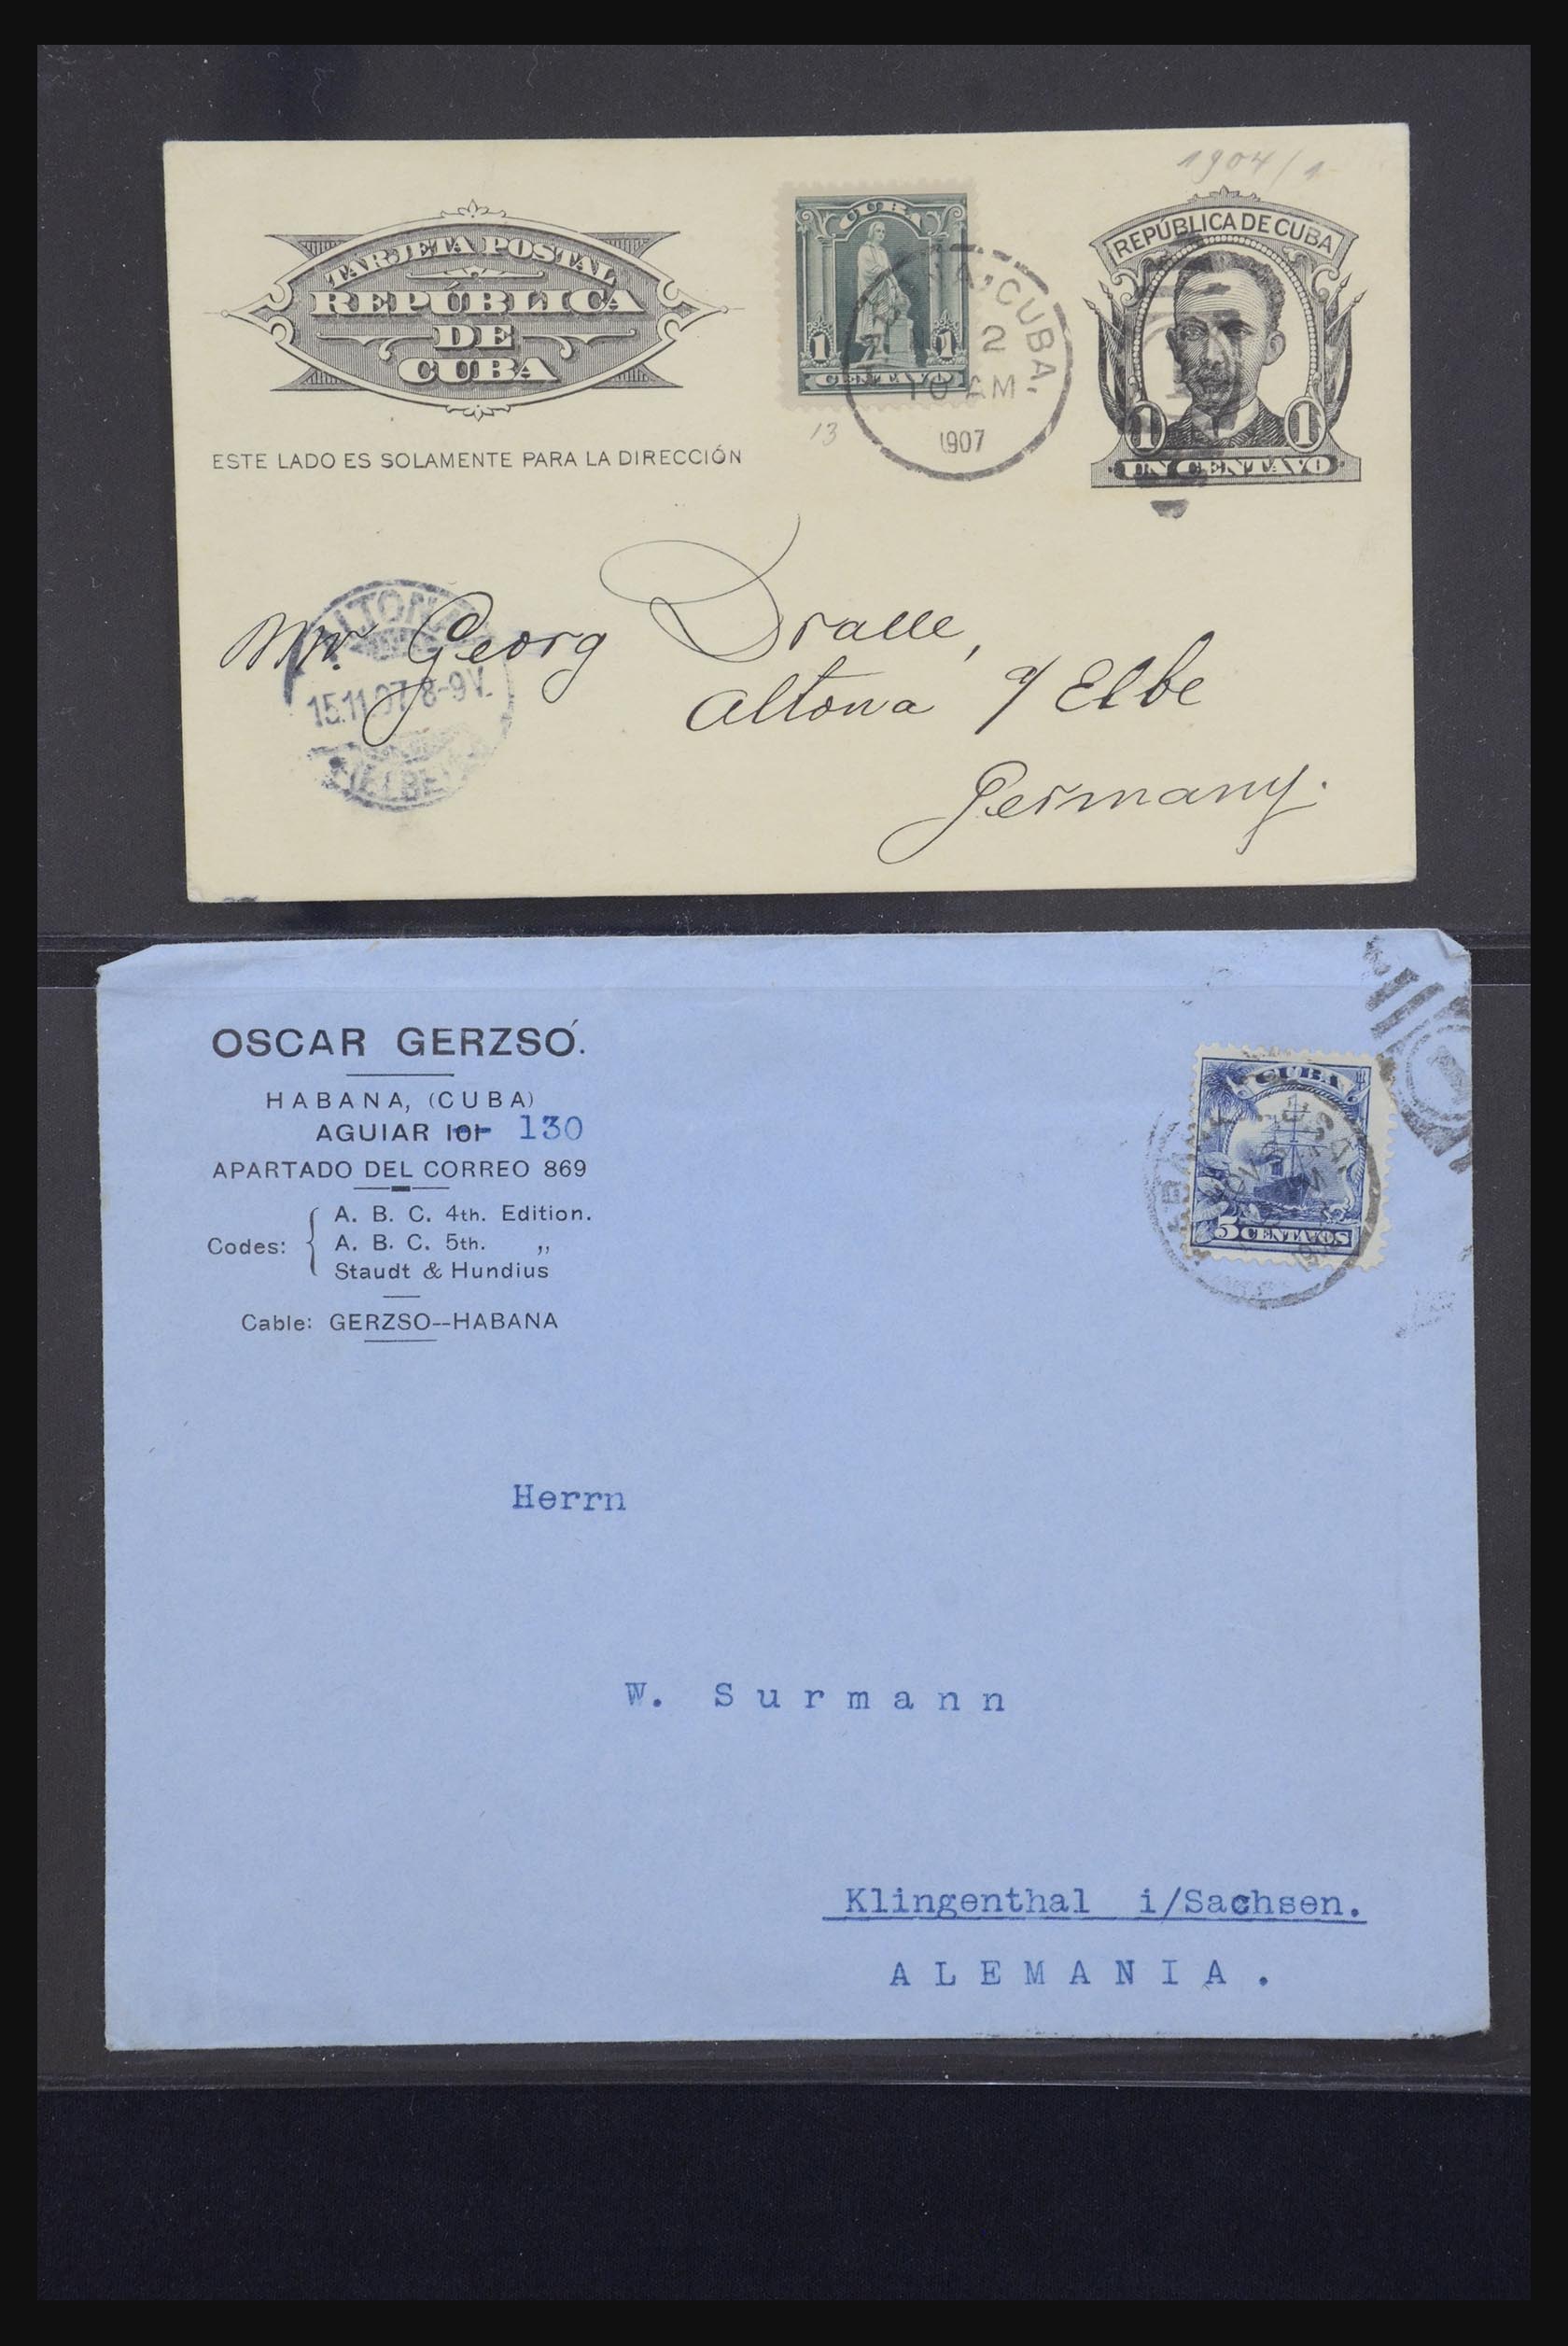 1904/1
TARJETA POSTAL
REPÚBLICA
DE
CUBA
ESTE LADO ES SOLAMENTE PARA LA DIRECCIÓN
CUBA
1 1
CENTAVO
CUBA.
2
10 AM
1907
13
REPÚBLICA DE CUBA
1 1
UN CENTAVO
ALTONA
15.11.07 8-9V.
(ELBE)
Mr. Georg Dralle,
Altona a/ Elbe
Germany.
OSCAR GERZSÓ.
HABANA, (CUBA)
AGUIAR 101 130
APARTADO DEL CORREO 869
Codes:
A. B. C. 4th. Edition.
A. B. C. 5th. „
Staudt & Hundius
Cable: GERZSO--HABANA
CUBA
5 CENTAVOS
1
Herrn
W. Surmann
Klingenthal i/Sachsen.
ALEMANIA.